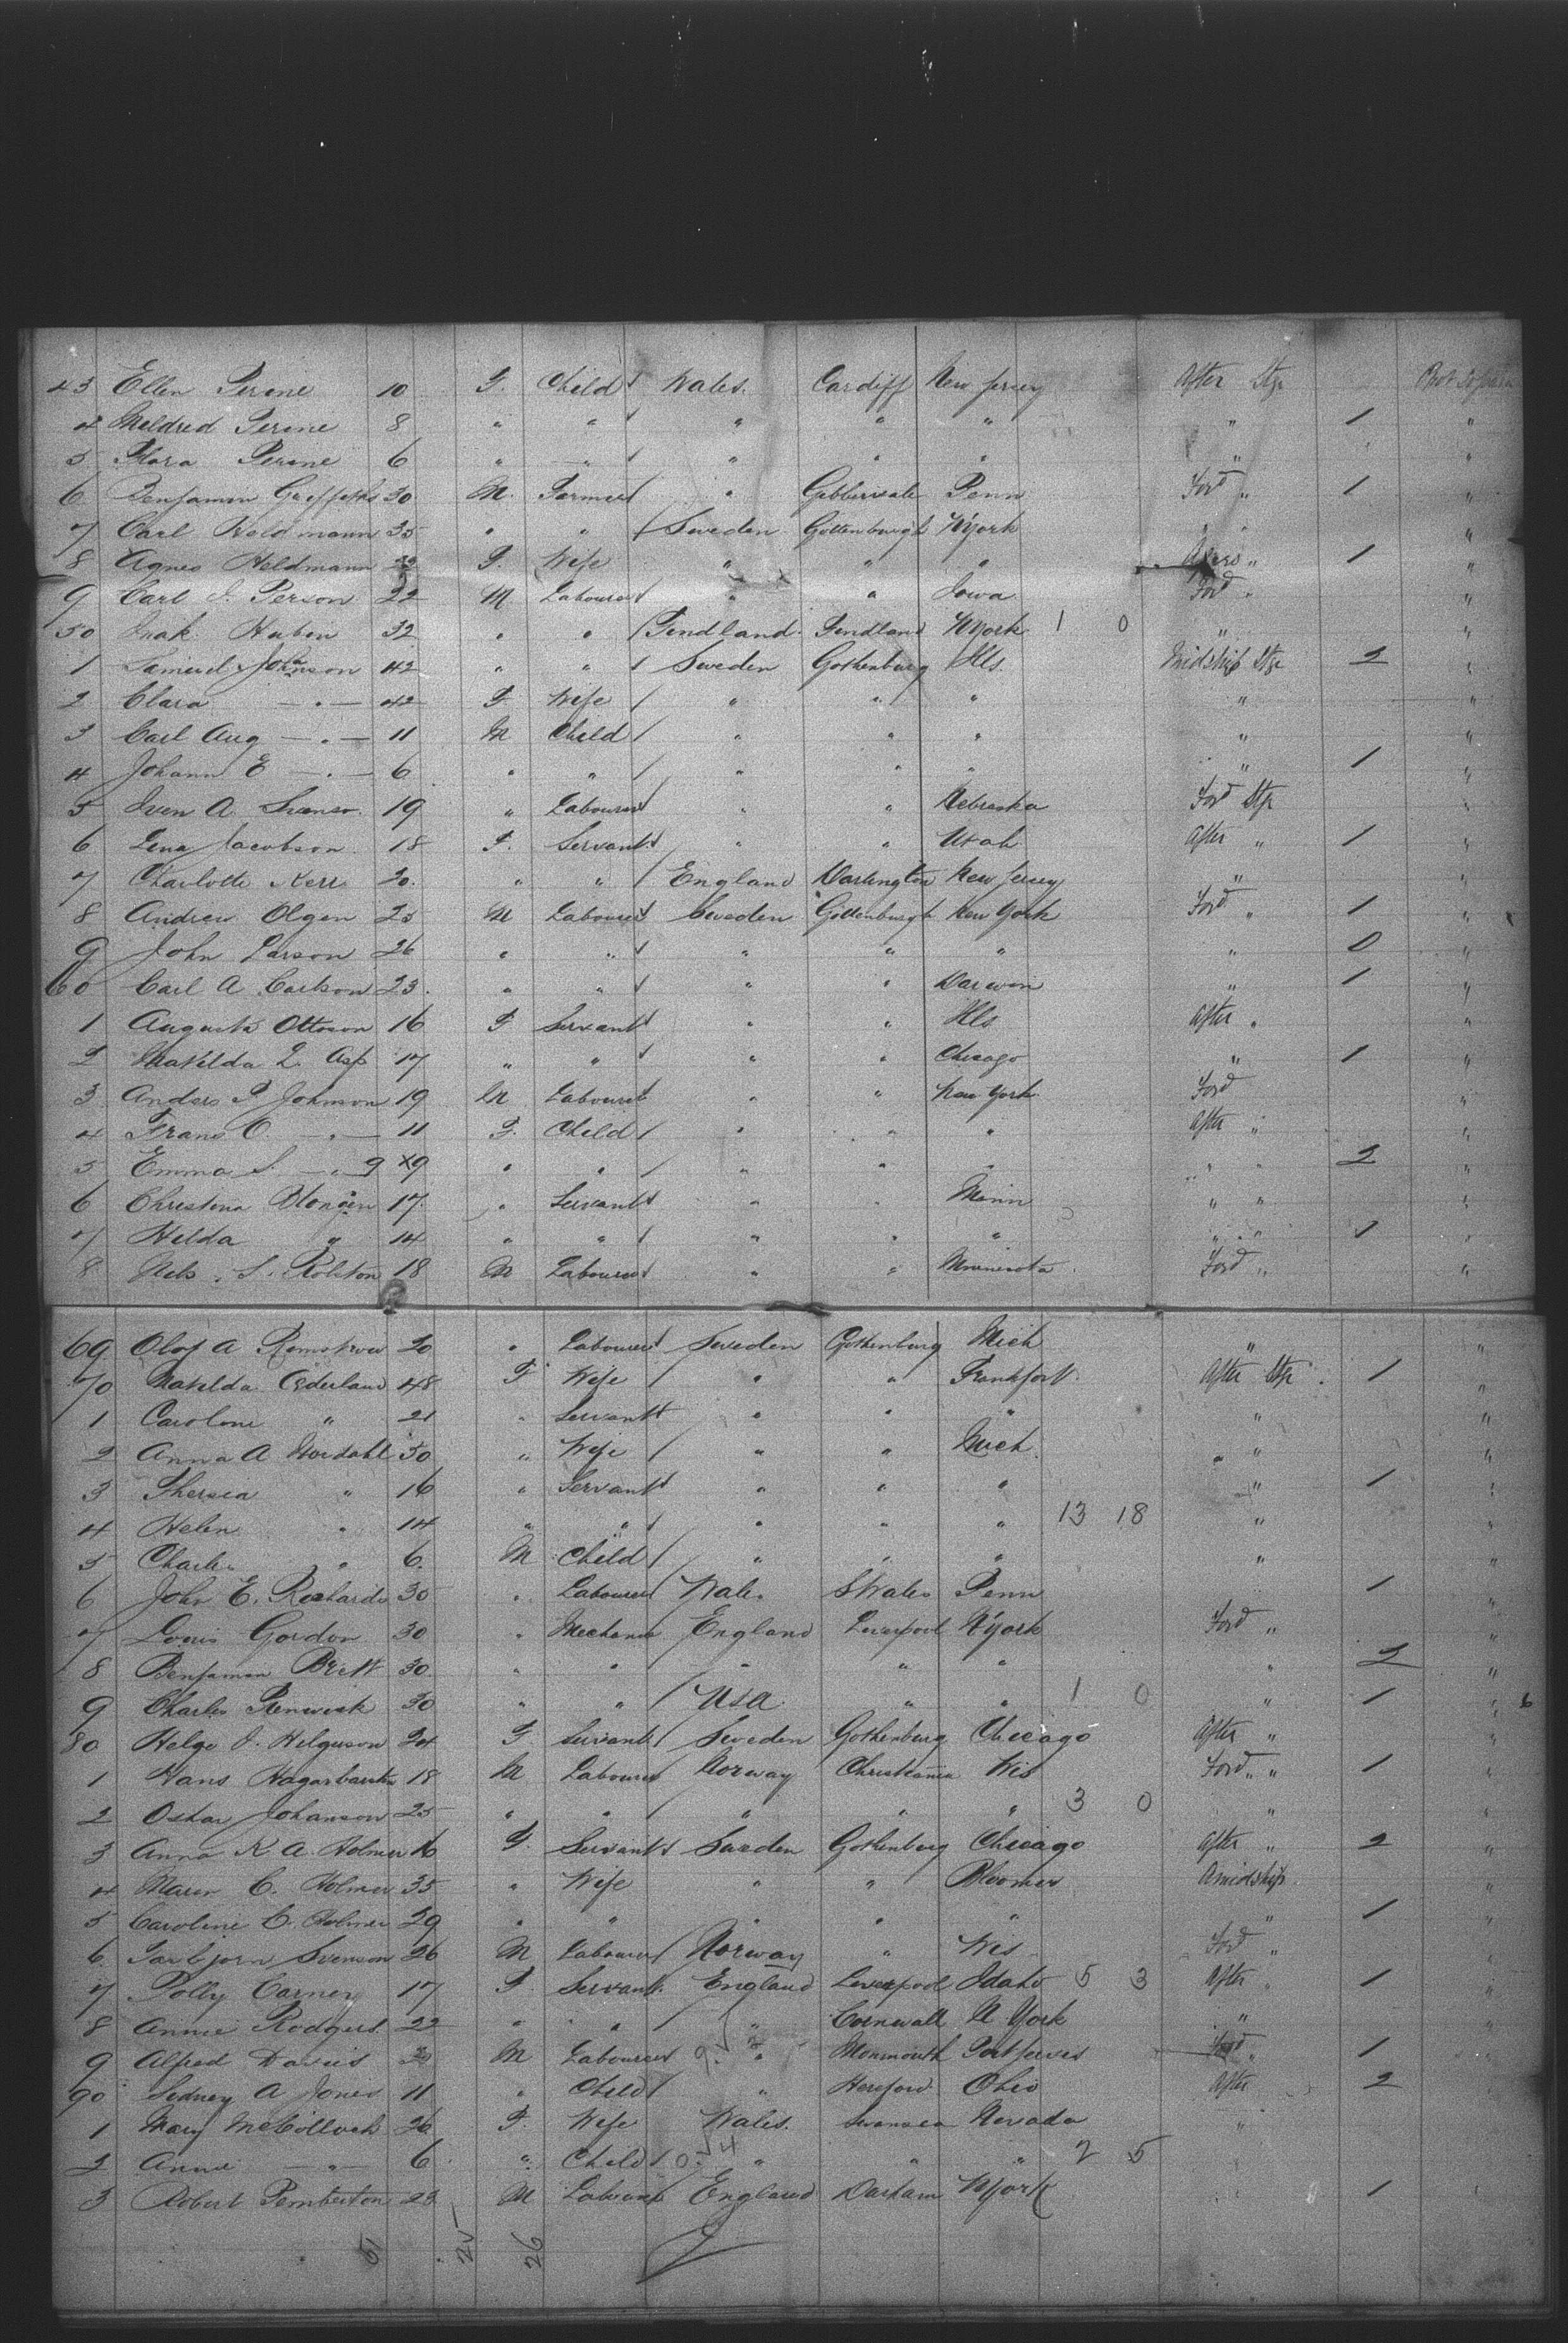 43 Ellen Perine 10 F. Child Wales. Cardiff New Jersey After Stge
4 Meldred Perine 8 " " " " " " 1 "
5 Flora Perine 6 " " " " " " "
6 Benjamin Greffeths 30 M. Farmer " Penn Ford " 1 "
7 Carl Heldmann 35 " " Sweden Gottenburgh N'York " "
8 Agnes Heldmann F. Wife " " " " 1 "
9 Carl J. Person 22 M. Labourer " " Iowa Ford " "
50 Huben 32 " " Findland. Findland N'York 1 0 " "
1 Samuel Johnson 42 " " Sweden Gothenburg Ills. Midship Stge 2 "
2 Clara — " — 42 F Wife " " " " "
3 Carl Aug — " — 11 M Child " " " " "
4 Johann E — " — 6 " " " " " " 1 "
5 Sven A. Svenso. 19 " Labourer " " Nebraska Ford Stge "
6 Lena Jacobson. 18 F. Servant " " Utah After " 1 "
7 Charlotte Kerr 20. " " England Darlington New Jersey " "
8 Andrew Olgen 25 M Labourer Sweden Gottenburgh New York Ford " 1 "
9 John Larson 26 " " " " " " 0 "
60 Carl A Carlson 23. " " " " Darwin " 1 "
1 Augusta Ottoson 16 F Servant " " Ills After " "
2 Matilda L. Asp 17 " " " " Chicago " 1 "
3 Anders P Johnson 19 M Labourer " " New York Ford "
4 Frans O. — " — 11 F. Child " " " After " "
5 Emma S. — " — 9 x9 " " " " " " " 2 "
6 Christina 17. " Servant " " Minn " " "
7 Hilda " 14 " " " " " " " 1 "
8 Nels. S. Rolston 18 M Labourer " " Minnesota Ford " "
69 Olof A 20 " Labourer Sweden Gothenburg Mich " "
70 Matilda Cederland 48 F Wife " " Frankfort After Stge. 1 "
1 Caroline " 21 " Servant " " " " "
2 Anna A 50 " Wife " " Mich. " " "
3 Theresia " 16 " Servant " " " " 1 "
4 Helen " 14 " " " " " 13 18 " "
5 Charles " 6. M Child " " " " "
6 John E. Richards 30 " Labourer Wales SWales Penn 1 "
7 Louis Gordon 30 " Mechanic England Liverpool N'York Ford " "
8 Benjamin Brett 30 " " " " " " 2 "
9 Charles Renwick 30 " " USA " " 1 0 " 1 " 6
80 Helge J. Helguson 24 F Servant Sweden Gothenburg Chicago After " "
1 Hans 18 M Labourer Norway Christiania Wis Ford " " 1 "
2 Oskar Johanson 25 " " " " " 3 0 " "
3 Anna K A. Holmer 16 F. Servant Sweden Gothenburg Chicago After " 2 "
4 Maren C. Holmer 35 " Wife " " Bloomer Amidship "
5 Caroline C. Holmer 29 " " " " " " 1 "
6. Torbjorn Svenson 26 M Labourer Norway " Wis Ford " "
7 Polly Carney 17 F. Servant England Liverpool Idaho 5 3 After " 1 "
8 Annie Rodgers. 22 " " " Cornwall N York " "
9 Alfred Davies M Labourer " Monmouth Port Jervis Ford " 1 "
90 Sedney A Jones 11 " Child " Hereford Ohio After 2 "
1 Mary McCulloch 26 F. Wife Wales. Swansea Nevada "
2 Annie — " — 6. " Child " " " 2 5
3 Robert Pemberton 23 M Labourer England Durham N'York 1
51 25 26